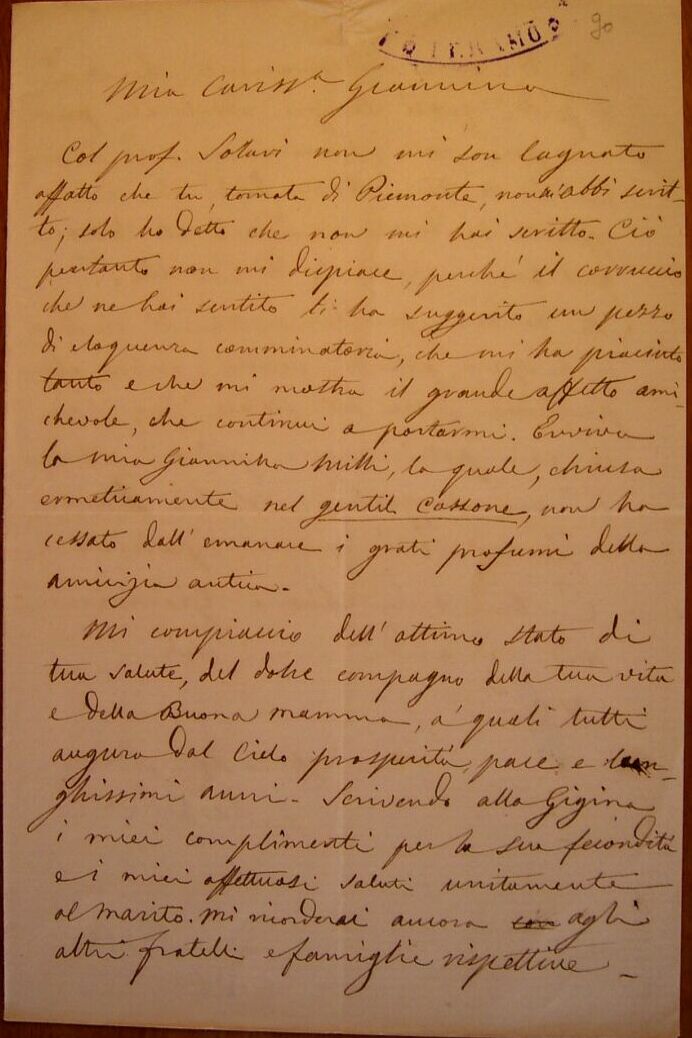 TERAMO
90
Mia Cariss.a Giannina
Col prof. Solari non mi son lagnato
affatto che tu, tornata di Piemonte, non abbi scrit-
to; solo ho detto che non mi hai scritto. Ciò
pertanto non mi dispiace, perché il corruccio
che ne hai sentito ti ha suggerito un pezzo
di eloquenza comminatoria, che mi ha piaciuto
tanto e che mi mostra il grande affetto ami-
chevole, che continui a portarmi. Evviva
la mia Giannina Milli, la quale, chiusa
ermeticamente nel gentil Cassone, non ha
cessato dall'emanare i grati profumi della
amicizia antica.
Mi compiaccio dell'ottimo stato di
tua salute, del dolce compagno della tua vita
e della Buona mamma, a' quali tutti
auguro dal Cielo prosperità, pace e lun-
ghissimi anni. Scrivendo alla Gigina
i miei complimenti per la sua fecondità
e i miei affettuosi saluti unitamente
al marito. Mi ricorderai ancora agli
altri fratelli e famiglie rispettive _